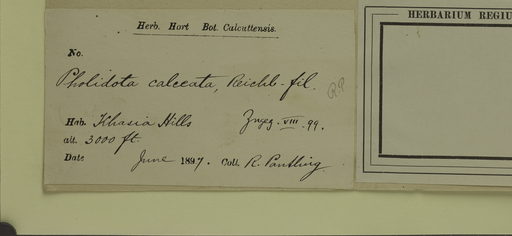 HERBARIUM REGIU
Herb. Hort Bot. Calcuttensis.
No.
Pholidota calceata, Reichb-fil.
R.P
Hab. Khasia Hills
VIII. 99.
alt. 3000 ft.
Date June 1897. Coll. R. Pantling.